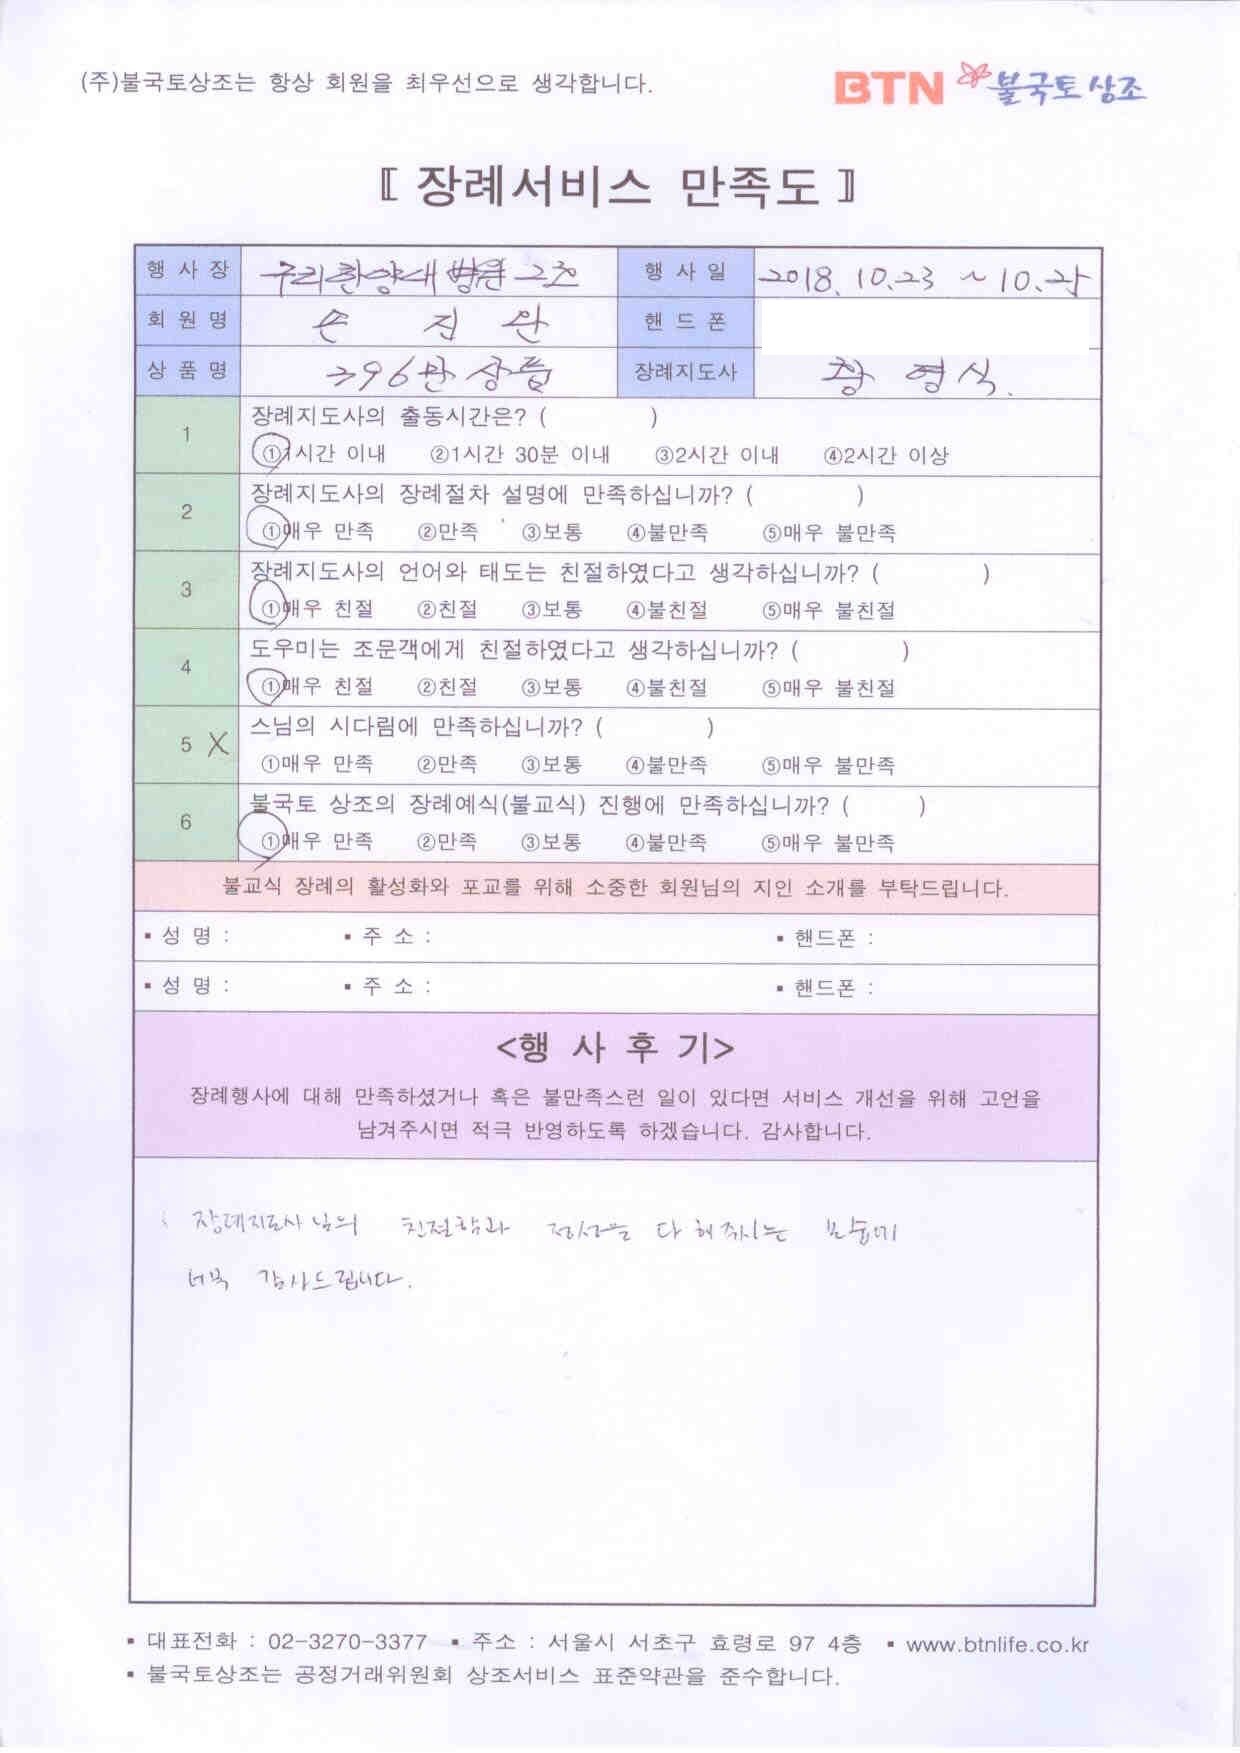 (주)불국토상조는 항상 회원을 최우선으로 생각합니다.
BTN 불국토 상조
〚 장례서비스 만족도 〛
행 사 장 구리한양대병원 2호 행 사 일 2018. 10.23 ~ 10.25
회 원 명 손 진 완 핸 드 폰
상 품 명 396만 상품 장례지도사 황 형 식.
1 장례지도사의 출동시간은? ( )
①1시간 이내 ②1시간 30분 이내 ③2시간 이내 ④2시간 이상
2 장례지도사의 장례절차 설명에 만족하십니까? ( )
①매우 만족 ②만족 ③보통 ④불만족 ⑤매우 불만족
3 장례지도사의 언어와 태도는 친절하였다고 생각하십니까? ( )
①매우 친절 ②친절 ③보통 ④불친절 ⑤매우 불친절
4 도우미는 조문객에게 친절하였다고 생각하십니까? ( )
①매우 친절 ②친절 ③보통 ④불친절 ⑤매우 불친절
5 X 스님의 시다림에 만족하십니까? ( )
①매우 만족 ②만족 ③보통 ④불만족 ⑤매우 불만족
6 불국토 상조의 장례예식(불교식) 진행에 만족하십니까? ( )
①매우 만족 ②만족 ③보통 ④불만족 ⑤매우 불만족
불교식 장례의 활성화와 포교를 위해 소중한 회원님의 지인 소개를 부탁드립니다.
▪ 성 명 : ▪ 주 소 : ▪ 핸드폰 :
▪ 성 명 : ▪ 주 소 : ▪ 핸드폰 :
<행 사 후 기>
장례행사에 대해 만족하셨거나 혹은 불만족스런 일이 있다면 서비스 개선을 위해 고언을
남겨주시면 적극 반영하도록 하겠습니다. 감사합니다.
장례지도사님의 친절함과 정성을 다해주시는 모습에
너무 감사드립니다.
▪ 대표전화 : 02-3270-3377 ▪ 주소 : 서울시 서초구 효령로 97 4층 ▪ www.btnlife.co.kr
▪ 불국토상조는 공정거래위원회 상조서비스 표준약관을 준수합니다.